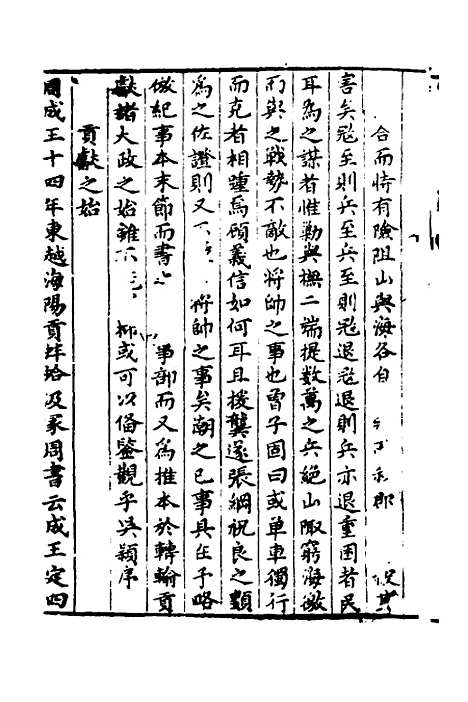 合而恃有險阻山與海各自
害矣寇至則兵至兵至則寇退寇退則兵亦退重困者民
耳為之謀者惟勦與撫二端提數萬之兵絕山陬窮海徼
而與之戰勢不敵也將帥之事也曾子固曰或單車獨行
而克者相踵焉顧義信如何耳且援龔遂張綱祝良之類
為之佐證則又不 將帥之事矣朝之已事具在予略
倣紀事本末節而書之 事部而又為推本於轉輸貢
獻諸大政之始雖不 抑或可以備鑒觀乎吳穎序
貢獻之始
周成王十四年東越海陽貢蚌蛤汲冢周書云成王定四